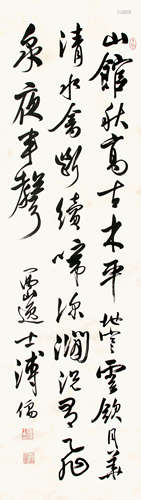 山館秋高古木平地寒雲斂月華
清水禽斷續啼深澗況飛
泉夜半聲
西山逸士溥儒